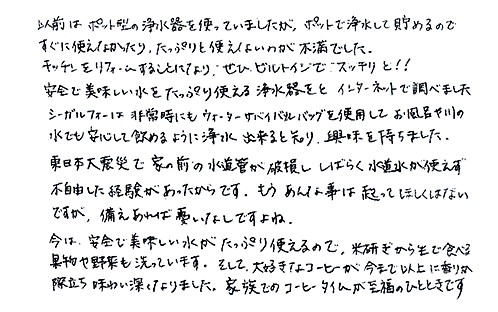 以前はポット型の浄水器を使っていましたが、ポットで浄水して貯めるので
すぐに使えなかったり、たっぷりと使えないのが不満でした。
キッチンをリフォームすることになり、ぜひビルトインでスッキリと!!
安全で美味しい水をたっぷり使える浄水器をと インターネットで調べました
シーガルフォーは非常時にもウォーターサバイバルバッグを使用してお風呂や川の
水でも安心して飲めるように浄水出来ると知り、興味を持ちました。
東日本大震災で家の前の水道管が破損し しばらく水道水が使えず
不自由した経験があったからです。もうあんな事は起ってほしくはない
ですが、備えあれば憂いなしですよね。
今は、安全で美味しい水がたっぷり使えるので、米研ぎから生で食べる
果物や野菜も洗っています。そして、大好きなコーヒーが今まで以上に香りが
際立ち 味わい深くなりました。家族でのコーヒータイムが至福のひとときです